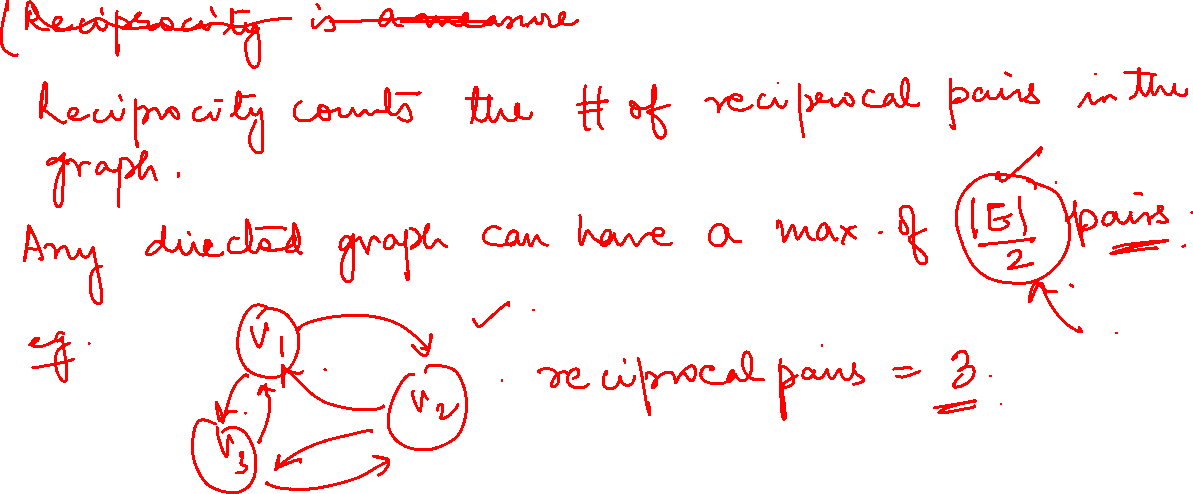 (Reciprocity is a measure
Reciprocity counts the # of reciprocal pairs in the
graph.
Any directed graph can have a max. of |E|/2 pairs.
eg.
V1
V2
V3
reciprocal pairs = 3.